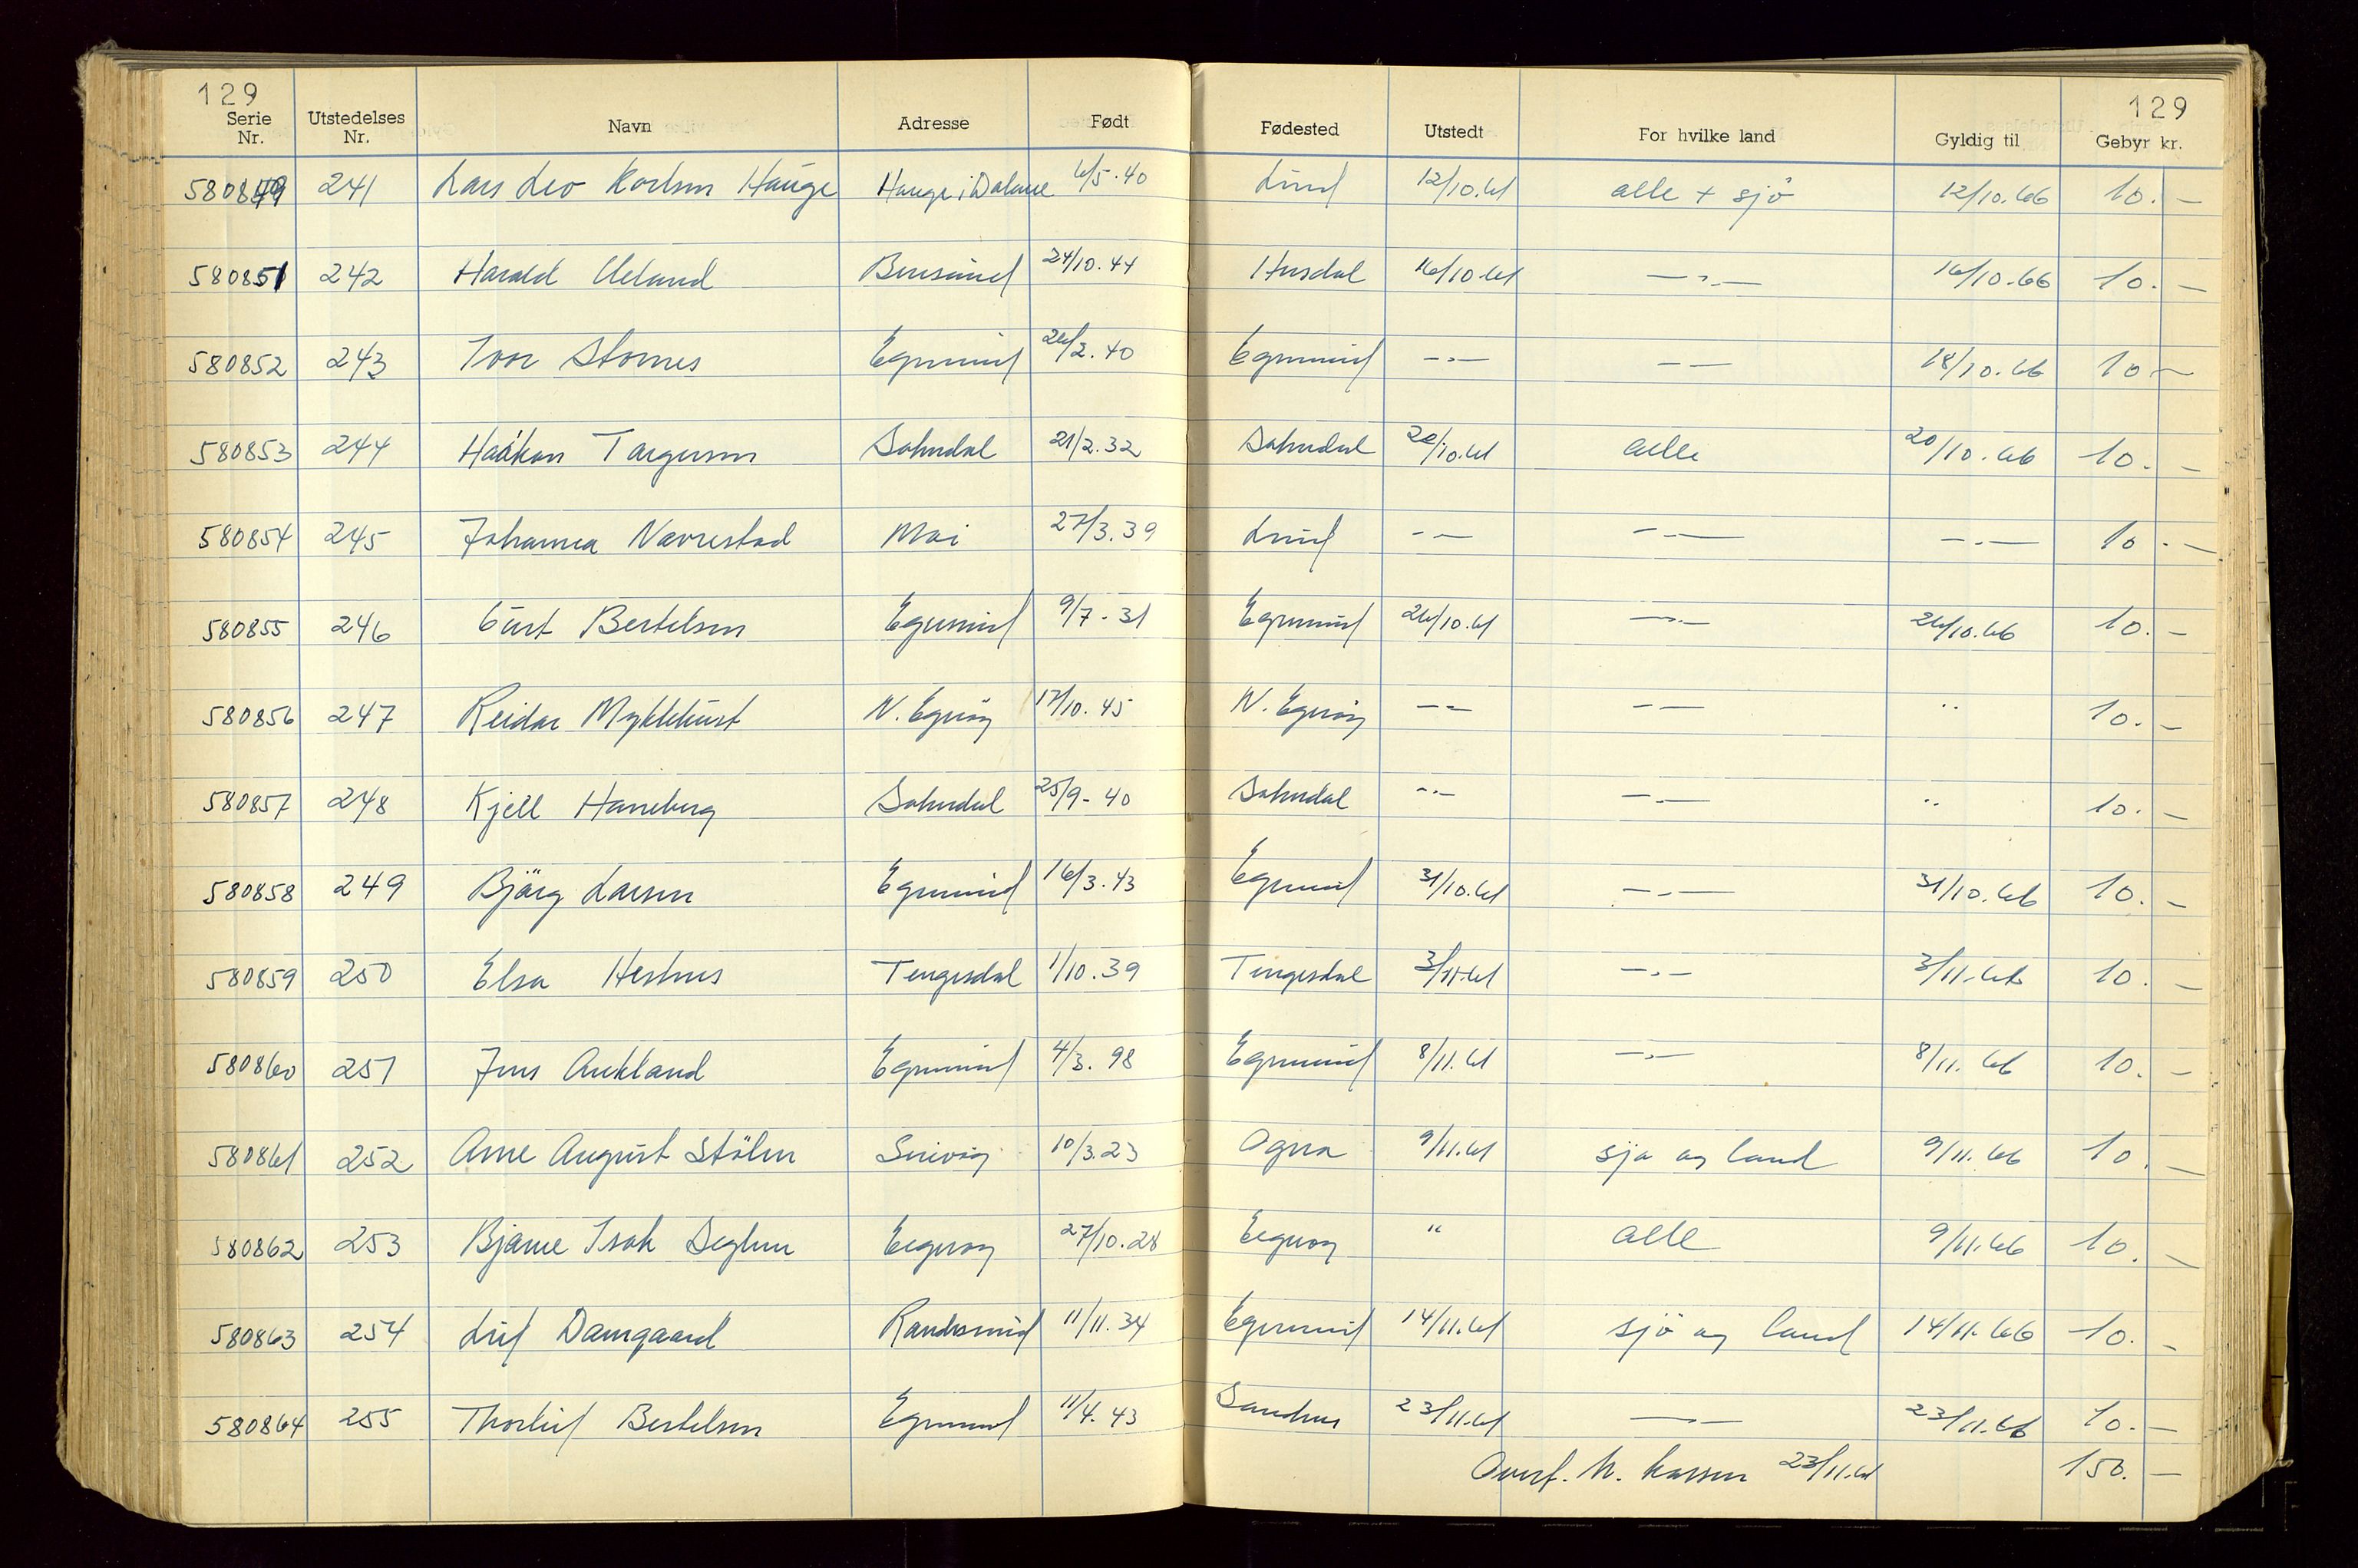 129 129
Serie Nr. Utstedelses Nr. Navn Adresse Født Fødested Utstedt For hvilke land Gyldig til Gebyr kr.
580849 241 Lars Leo Karlsen Hauge Hauge i Dalane 6/5.40 Lund 12/10.61 alle + sjö 12/10.66 10.-
580851 242 Harald Ueland 24/10.44 16/10.61 -"- 16/10.66 10.-
580852 243 Ivar Stornes Egersund 26/2.40 Egersund -"- -"- 18/10.66 10.-
580853 244 Haakon Torgersen Sokndal 21/2.32 Sokndal 20/10.61 alle 20/10.66 10.-
580854 245 Johanna Navrestad Moi 27/3.39 Lund -"- -"- -"- 10.-
580855 246 Curt Bertelsen Egersund 9/7-31 Egersund 26/10.61 -"- 26/10.66 10.-
580856 247 Reidar Myklebust N. Egeröy 17/10.45 N. Egeröy -"- -"- " 10.-
580857 248 Kjell Haneberg Sokndal 25/9-40 Sokndal -"- -"- " 10.-
580858 249 Björg Larsen Egersund 16/3.43 Egersund 31/10.61 -"- 31/10.66 10.-
580859 250 Elsa Hestnes Tengesdal 1/10.39 Tengesdal 3/11.61 -"- 3/11.66 10.-
580860 251 Jens Aukland Egersund 4/3.98 Egersund 8/11.61 -"- 8/11.66 10.-
580861 252 Arne August Stölen Sirevåg 10/3.23 Ogna 9/11.61 sjø og land 9/11.66 10.-
580862 253 Bjarne Isak Seglem Eigerøy 27/10.28 Eigerøy " alle 9/11.66 10.-
580863 254 Leif Damgaard 11/11.34 Egersund 14/11.61 sjö og land 14/11.66 10.-
580864 255 Thorleif Bertelsen Egersund 11/4.43 Sandnes 23/11.61 -"- 23/11.66 10.-
Overf. 23/11.61 150.-